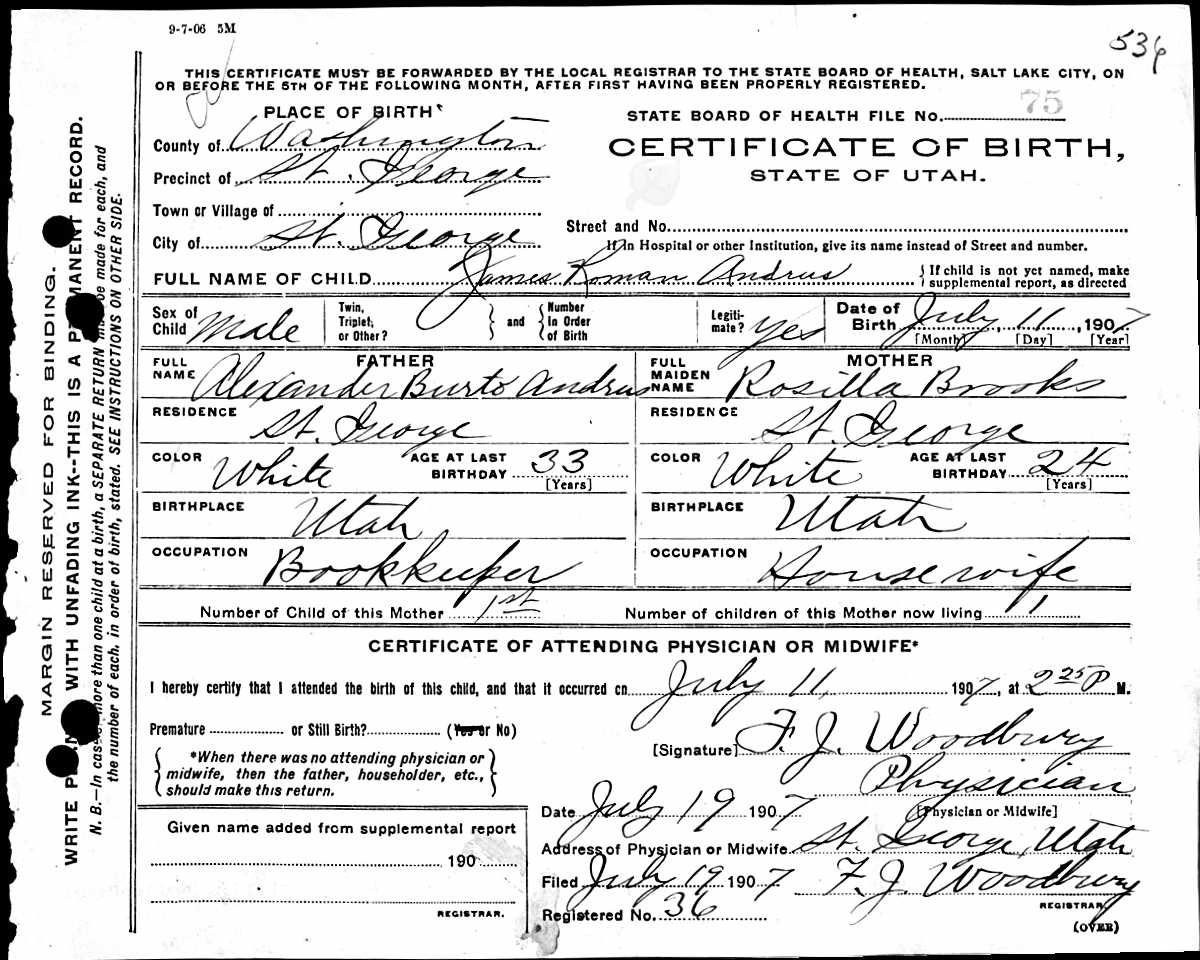 9-7-06 5M
536
THIS CERTIFICATE MUST BE FORWARDED BY THE LOCAL REGISTRAR TO THE STATE BOARD OF HEALTH, SALT LAKE CITY, ON
OR BEFORE THE 5TH OF THE FOLLOWING MONTH, AFTER FIRST HAVING BEEN PROPERLY REGISTERED.
PLACE OF BIRTH
County of Washington
Precinct of St. George
Town or Village of
City of St. George
STATE BOARD OF HEALTH FILE No. 75
CERTIFICATE OF BIRTH,
STATE OF UTAH.
Street and No.
If in Hospital or other Institution, give its name instead of Street and number.
FULL NAME OF CHILD James Roman Andrus
{ If child is not yet named, make
supplemental report, as directed
Sex of Child Male
Twin, Triplet, or Other? } and { Number In Order of Birth
Legiti-mate? yes
Date of Birth July 11, 1907
[Month] [Day] [Year]
FATHER
FULL NAME Alexander Burt Andrus
RESIDENCE St. George
COLOR White AGE AT LAST BIRTHDAY 33
[Years]
BIRTHPLACE Utah
OCCUPATION Bookkeeper
MOTHER
FULL MAIDEN NAME Rosilla Brooks
RESIDENCE St. George
COLOR White AGE AT LAST BIRTHDAY 24
[Years]
BIRTHPLACE Utah
OCCUPATION Housewife
Number of Child of this Mother 1st Number of children of this Mother now living 1
CERTIFICATE OF ATTENDING PHYSICIAN OR MIDWIFE*
I hereby certify that I attended the birth of this child, and that it occurred on July 11, 1907, at 2 25 P M.
Premature or Still Birth? (Yes or No)
*When there was no attending physician or
midwife, then the father, householder, etc.,
should make this return.
[Signature] F. J. Woodbury
Physician
[Physician or Midwife]
Date July 19 1907
Address of Physician or Midwife St. George, Utah
Filed July 19 1907 F. J. Woodbury
REGISTRAR.
Registered No. 36
(OVER)
Given name added from supplemental report
190
REGISTRAR.
MARGIN RESERVED FOR BINDING.
WRITE WITH UNFADING INK--THIS IS A RECORD.
N. B.—In more than one child at a birth, a SEPARATE RETURN be made for each, and
the number of each, in order of birth, stated. SEE INSTRUCTIONS ON OTHER SIDE.